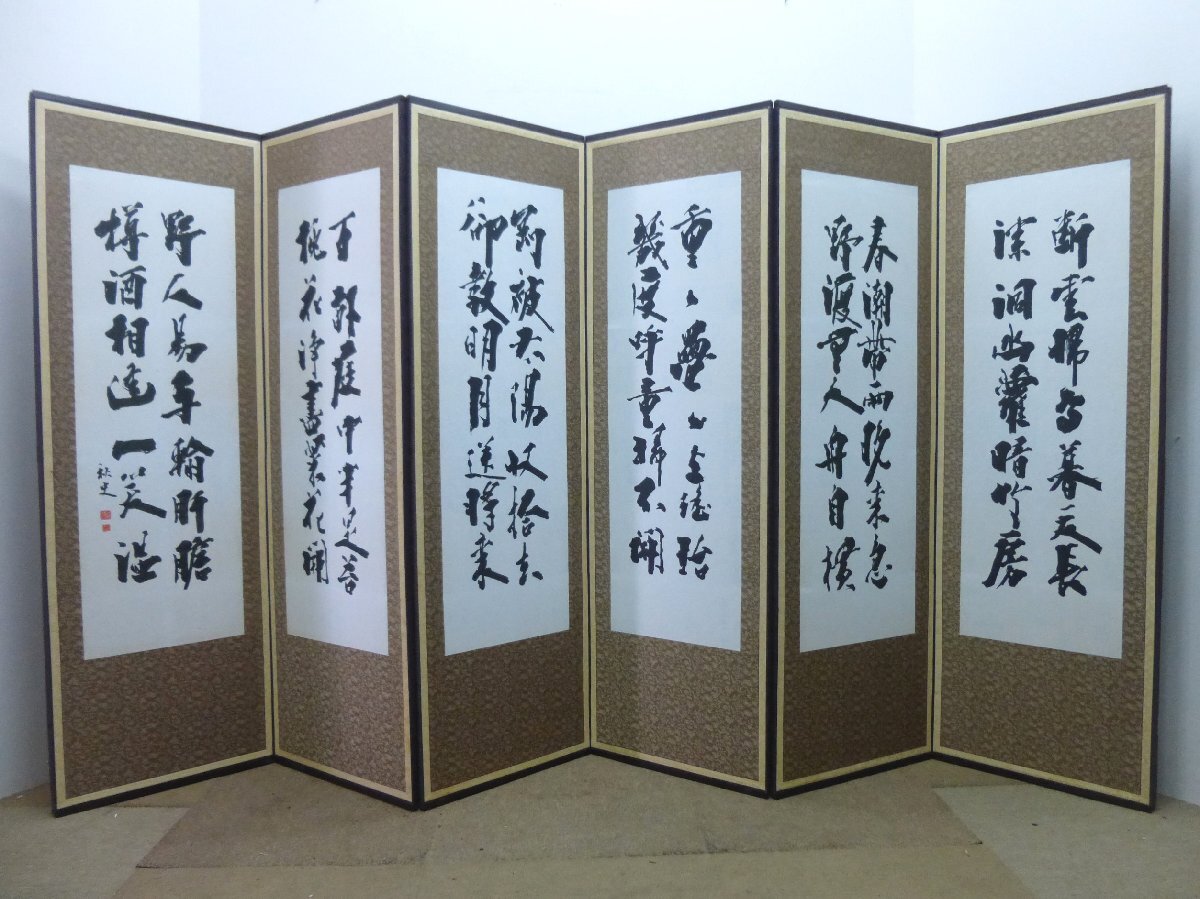 斷雲歸鳥暮天長
深洞幽蘿暗竹房
春潮帶雨晚來急
野渡無人舟自橫
重々疊々上瑤臺
幾度呼童掃不開
剛被太陽收拾去
卻敎明月送將來
百畝庭中半是苔
桃花淨盡菜花開
野人易與輸肝膽
樽酒相逢一笑溫
秋史